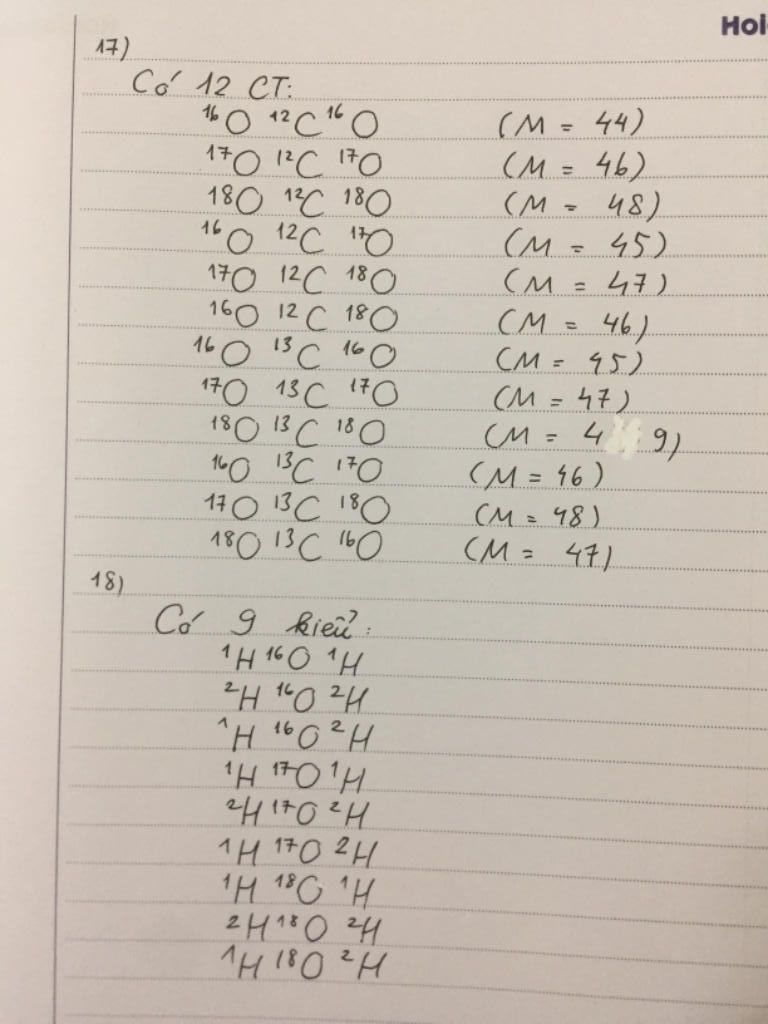 Hol
17)
Có 12 CT:
¹⁶O ¹²C ¹⁶O (M = 44)
¹⁷O ¹²C ¹⁷O (M = 46)
¹⁸O ¹²C ¹⁸O (M = 48)
¹⁶O ¹²C ¹⁷O (M = 45)
¹⁷O ¹²C ¹⁸O (M = 47)
¹⁶O ¹²C ¹⁸O (M = 46)
¹⁶O ¹³C ¹⁶O (M = 45)
¹⁷O ¹³C ¹⁷O (M = 47)
¹⁸O ¹³C ¹⁸O (M = 4 9)
¹⁶O ¹³C ¹⁷O (M = 46)
¹⁷O ¹³C ¹⁸O (M = 48)
¹⁸O ¹³C ¹⁶O (M = 47)
18)
Có 9 kiểu:
¹H ¹⁶O ¹H
²H ¹⁶O ²H
¹H ¹⁶O ²H
¹H ¹⁷O ¹H
²H ¹⁷O ²H
¹H ¹⁷O ²H
¹H ¹⁸O ¹H
²H ¹⁸O ²H
¹H ¹⁸O ²H